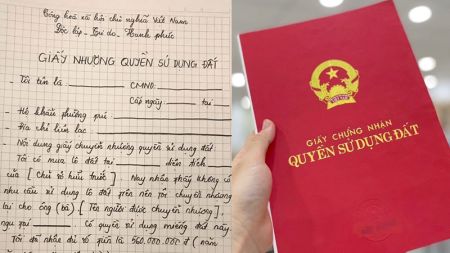 Cộng hoà xã hội chủ nghĩa Việt Nam
Độc lập - Tự do - Hạnh phúc
GIẤY NHƯỢNG QUYỀN SỬ DỤNG ĐẤT
- Tôi tên là CMND:
Cấp ngày tại
- Hộ khẩu thường trú:
- Địa chỉ liên lạc
Nội dung giấy chuyển nhượng quyền sử dụng đất.
Tôi có mua lô đất tại diện tích
của [Chủ sở hữu trước]. Nay nhận thấy không có
nhu cầu sử dụng lô đất trên nên tôi chuyển nhượng
lại cho ông (bà) [Tên người được chuyển nhượng],
ngụ tại Có quyền sử dụng miếng đất này
Tôi đã nhận đủ số tiền là 560.000.000 đ ( năm
VIỆT NAM
GIẤY CHỨNG NHẬN
QUYỀN SỬ DỤNG ĐẤT